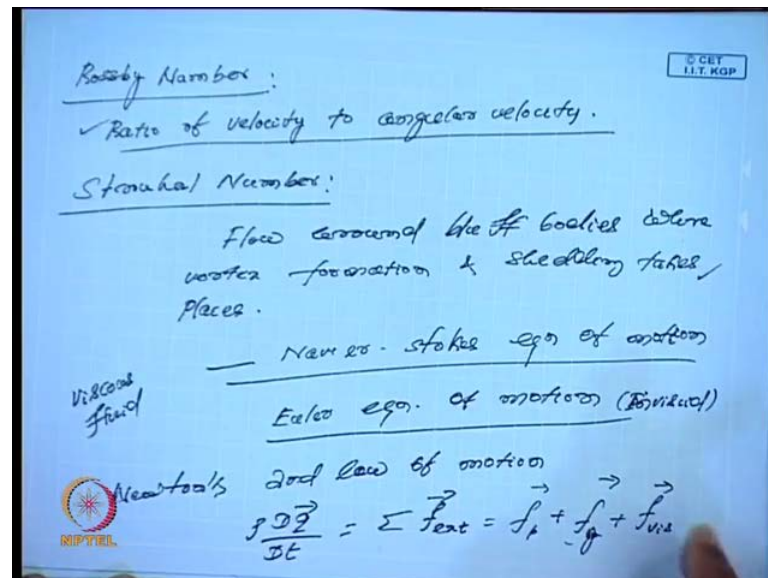 © CET
I.I.T. KGP
Rossby Number :
✓ Ratio of velocity to angular velocity.
Strouhal Number :
Flow around bluff bodies where
vortex formation & shedding takes
places.
— Navier-stokes eqn of motion
Viscous
fluid
Euler eqn. of motion (Inviscid)
Newton's 2nd law of motion
ρ Dq⃗/Dt = Σ f⃗ext = f⃗p + f⃗g + f⃗vis
NPTEL